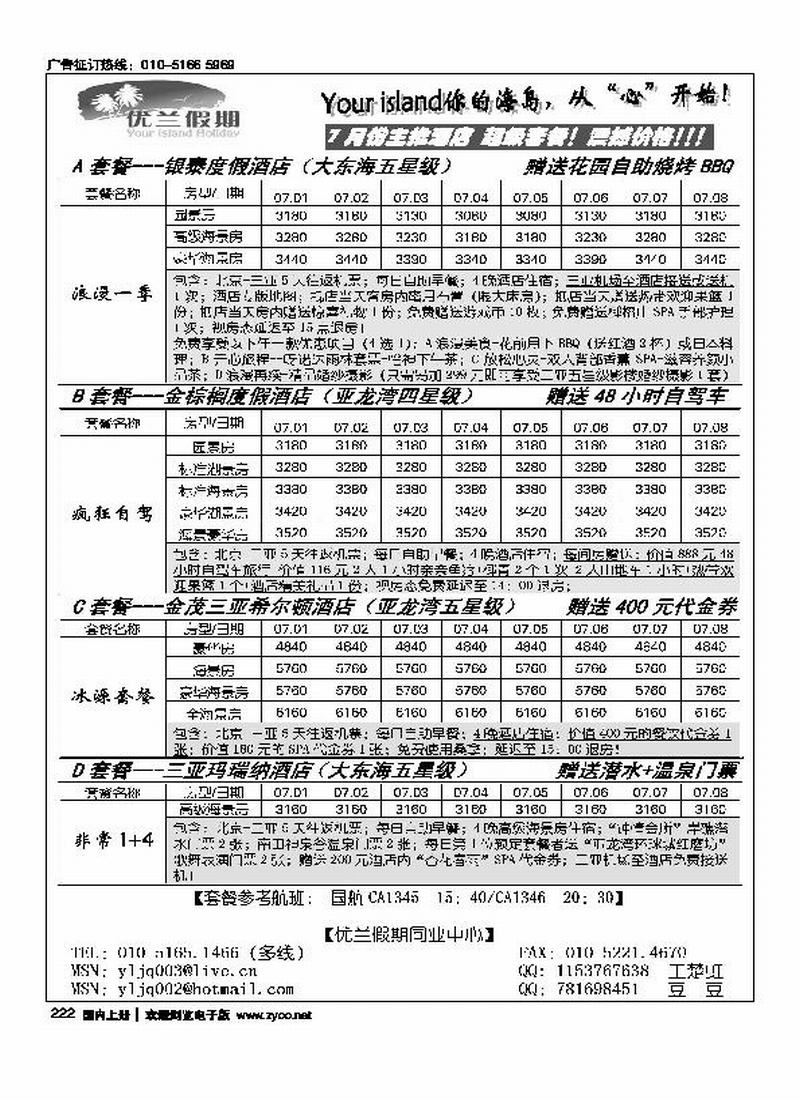 广告征订热线：010-5166 5969
优兰假期
Your Island Holiday
Your island你的海岛，从“心”开始！
7月份主推酒店 超级套餐！震撼价格!!!
A 套餐---银泰度假酒店（大东海五星级） 赠送花园自助烧烤 BBQ
套餐名称 房型/日期 07.01 07.02 07.03 07.04 07.05 07.06 07.07 07.08
浪漫一季
园景房 3180 3180 3130 3080 3080 3130 3180 3180
高级海景房 3280 3280 3230 3180 3180 3230 3280 3280
豪华海景房 3440 3440 3390 3340 3340 3390 3440 3440
包含：北京-三亚5天往返机票；每日自助早餐；4晚酒店住宿；三亚机场至酒店接送或送机
1次；酒店专版地图；抵店当天客房内蜜月布置（限大床房）；抵店当天赠送热带欢迎果篮1
份；抵店当天房内赠送惊喜礼物1份；免费赠送游戏币10枚；免费赠送 SPA 手部护理
1次；视房态延迟至15点退房！
免费享受以下任一款优惠项目（4选1）：A浪漫美食-花前月下BBQ（送红酒2杯）或日本料
理；B开心旅程- C放松心灵-双人背部香薰SPA-
D浪漫再续-精品婚纱摄影（只需另加299元即可享受三亚五星级影楼婚纱摄影1套）
B 套餐---金棕榈度假酒店（亚龙湾四星级） 赠送 48 小时自驾车
套餐名称 房型/日期 07.01 07.02 07.03 07.04 07.05 07.06 07.07 07.08
疯狂自驾
园景房 3180 3180 3180 3180 3180 3180 3180 3180
标准湖景房 3280 3280 3280 3280 3280 3280 3280 3280
标准海景房 3380 3380 3380 3380 3380 3380 3380 3380
豪华湖景房 3420 3420 3420 3420 3420 3420 3420 3420
海景豪华房 3520 3520 3520 3520 3520 3520 3520 3520
包含：北京-三亚5天往返机票；每日自助早餐；4晚酒店住宿；每间房赠送：价值888元48
小时自驾车旅行 价值116元2人1小时亲亲鱼疗+椰青2个1次 2人山地车1小时+热带欢
迎果篮1个+酒店精美礼品1份；视房态免费延迟至14：00退房；
C 套餐---金茂三亚希尔顿酒店（亚龙湾五星级） 赠送 400 元代金券
套餐名称 房型/日期 07.01 07.02 07.03 07.04 07.05 07.06 07.07 07.08
冰源套餐
豪华房 4840 4840 4840 4840 4840 4840 4840 4840
海景房 5760 5760 5760 5760 5760 5760 5760 5760
豪华海景房 5760 5760 5760 5760 5760 5760 5760 5760
全海景房 6160 6160 6160 6160 6160 6160 6160 6160
包含：北京-三亚5天往返机票；每日自助早餐；4晚酒店住宿；价值400元的餐饮代金券1
张；价值180元的SPA代金券1张；免费使用桑拿；延迟至15：00退房！
D 套餐---三亚玛瑞纳酒店（大东海五星级） 赠送潜水+温泉门票
套餐名称 房型/日期 07.01 07.02 07.03 07.04 07.05 07.06 07.07 07.08
非常1+4
高级海景房 3160 3160 3160 3160 3160 3160 3160 3160
包含：北京-三亚5天往返机票；每日自助早餐；4晚高级海景房住宿； 岸礁潜
水门票2张；南田神泉谷温泉门票2张；每日第1位预定套餐者送“亚龙湾环球城红磨坊”
歌舞表演门票2张；赠送200元酒店内“杏花春雨”SPA代金券；三亚机场至酒店免费接送
机！
【套餐参考航班： 国航 CA1345 15：40/CA1346 20：30】
【优兰假期同业中心】
TEL: 010-5165.1466（多线） FAX: 010-5221.4670
MSN: yljq003@live.cn QQ: 1153767638 王楚虹
MSN: yljq002@hotmail.com QQ: 781698451 豆 豆
222 国内上册 | 欢迎浏览电子版 www.zyco.net